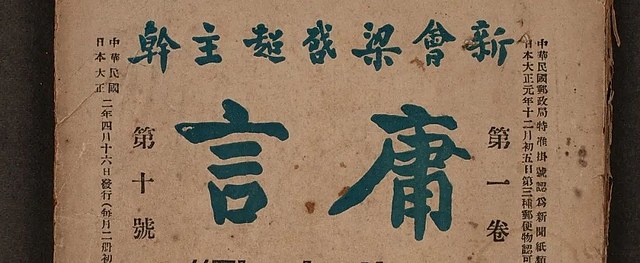 中華民國郵政局特准掛號認爲新聞紙類
日本大正元年十二月初五日第三種郵便物認可
新會梁啟超主幹
第一卷
庸言
第十號
中華民國
日本大正
二年四月十六日發行(每月二册初